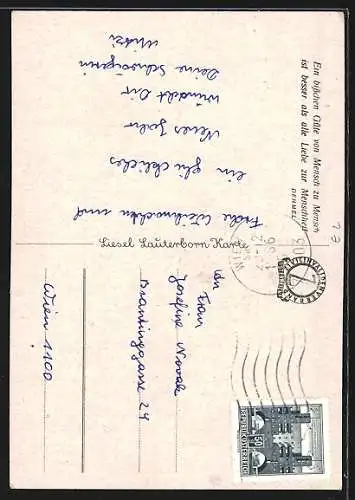 Ein bißchen Güte von Mensch zu Mensch
ist besser als alle Liebe zur Menschheit
DEHMEL
Frohe Weihnachten und
ein glückliches
Neues Jahr
wünscht Dir
Deine Schwägerin
Mitzi
Liesel Lauterborn Karte
An Frau
Josefine Novak
Brantinggasse 24
Wien 1100
REPUBLIK ÖSTERREICH
WIEN